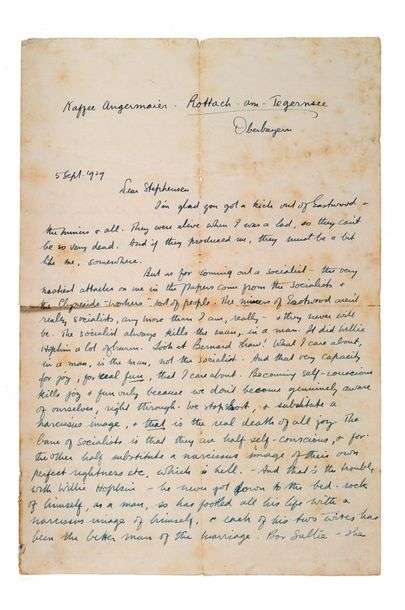 Kaffee Angermaier - Rottach-am-Tegernsee
Oberbayern
5 Sept. 1929
Dear Stephensen
I'm glad you got a kick out of Eastwood &
the miners & all. They were alive when I was a lad, so they can't
be so very dead. And if they produced me, they must be a bit
like me, somewhere.
But as for coming out a socialist - the very
nastiest attacks on me in the papers come from the socialists &
the Clydeside "workers" sort of people. The miners of Eastwood aren't
really socialists, any more than I am, really - & they never will
be. The socialist always kills the man, in a man. It did Willie
Hopkin a lot of harm. Look at Bernard Shaw! What I care about,
in a man, is the man, not the socialist. And that very capacity
for joy, for real fun, that I care about. Becoming self-conscious
kills joy & fun only because we don't become genuinely aware
of ourselves, right through. We stop short, & substitute a
narcissus image, & that is the real death of all joy. The
bane of socialists is that they are half self-conscious, & for
the other half substitute a narcissus image of their own
perfect rightness etc, which is hell. - And that's the trouble
with Willie Hopkin - he never got down to the bed-rock
of himself, as a man, so has footled all his life with a
narcissus image of himself, & each of his two wives has
been the better man of the marriage. Poor Sallie - she